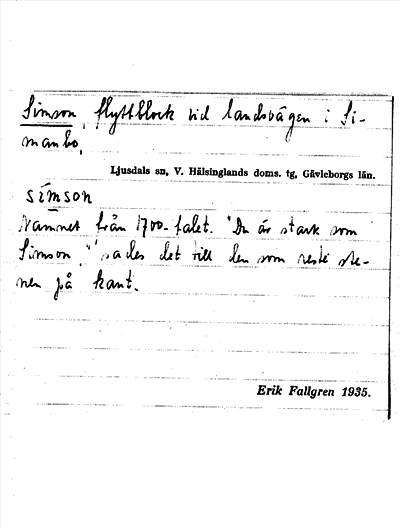 Simson, flyttblock vid landsvägen i Si-
manbo.
Ljusdals sn, V. Hälsinglands doms. tg, Gävleborgs län.
simson
Namnet från 1700-talet. "Du är stark som
Simson." sades det till den som reste ste-
nen på kant.
Erik Fallgren 1935.